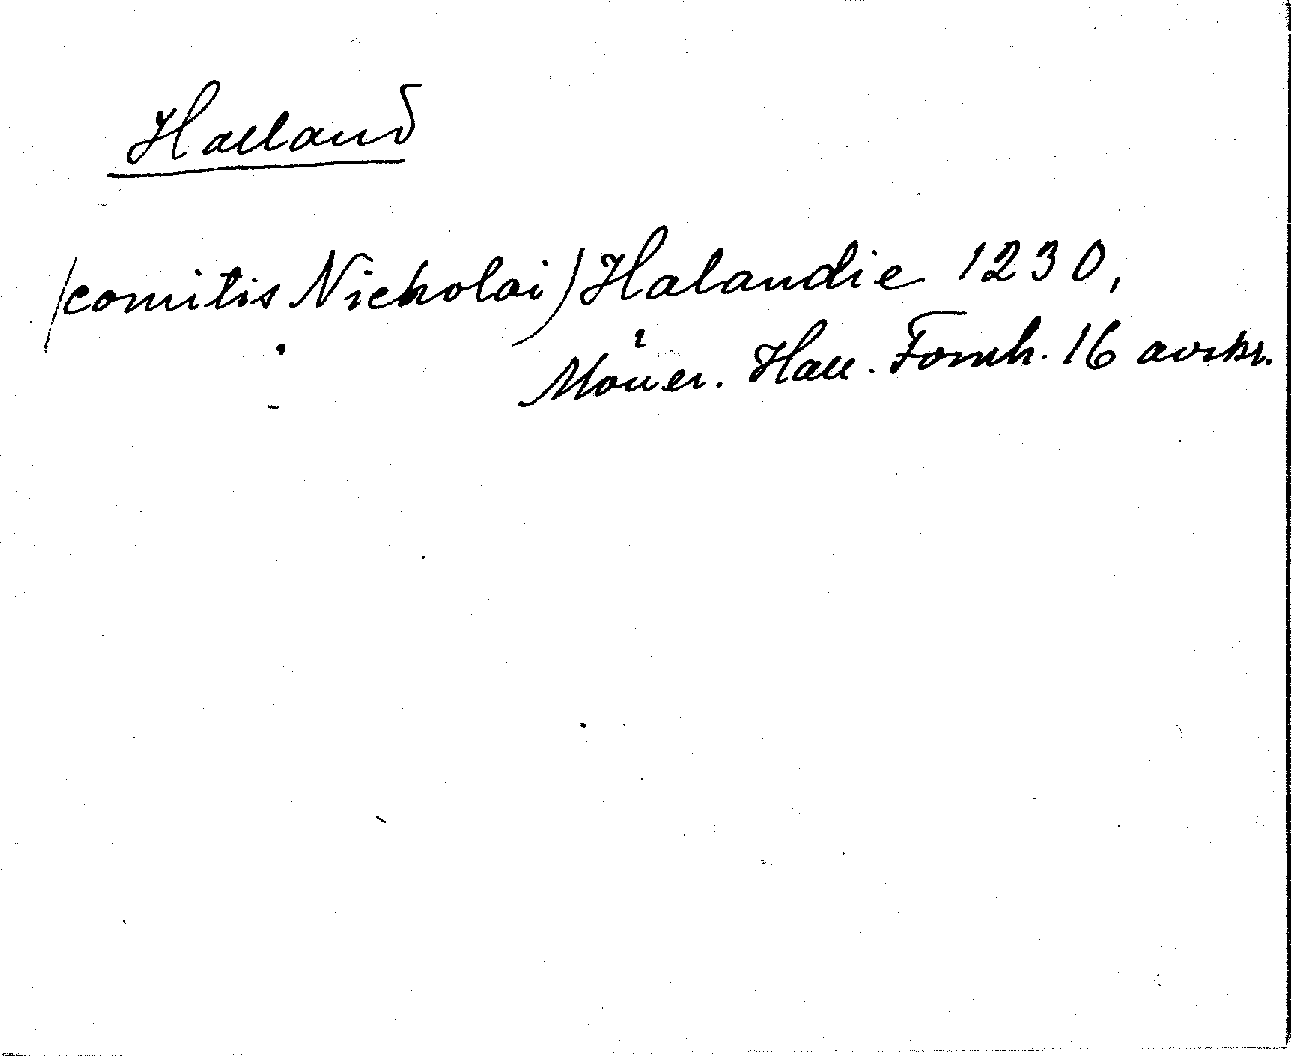 Halland
(comitis Nicholai) Halandie 1230,
Möller. Hall. Fornh. 16 avskr.